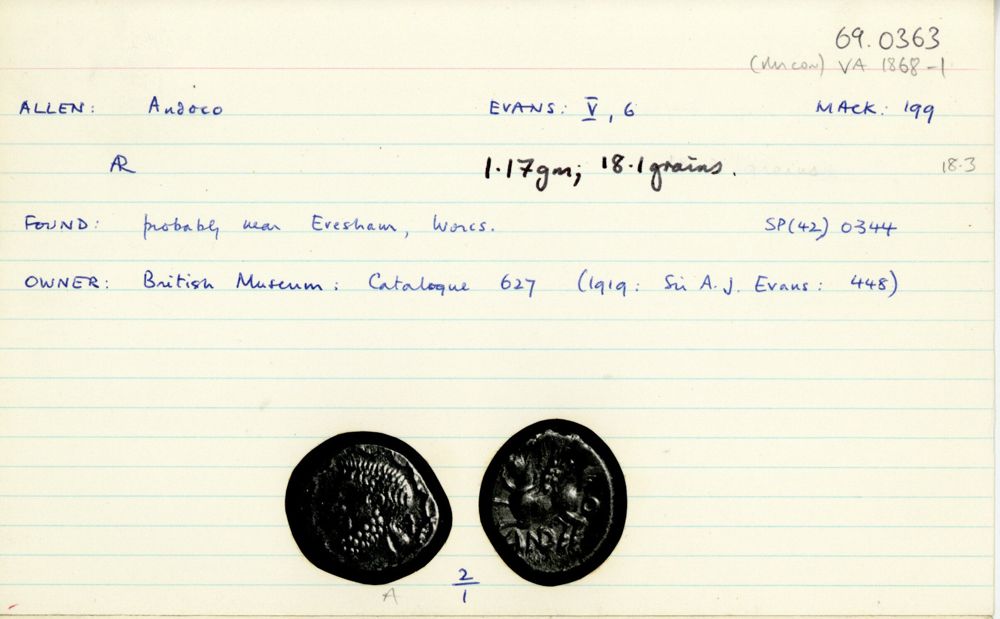 69.0363
(Mucon) VA 1868-1
ALLEN: Andoco EVANS: V, 6 MACK: 199
AR 1.17gm; 18.1grains. grains 18.3
FOUND: probably near Evesham, Worcs. SP(42) 0344
OWNER: British Museum: Catalogue 627 (1919: Sir A.J. Evans: 448)
A 2/1